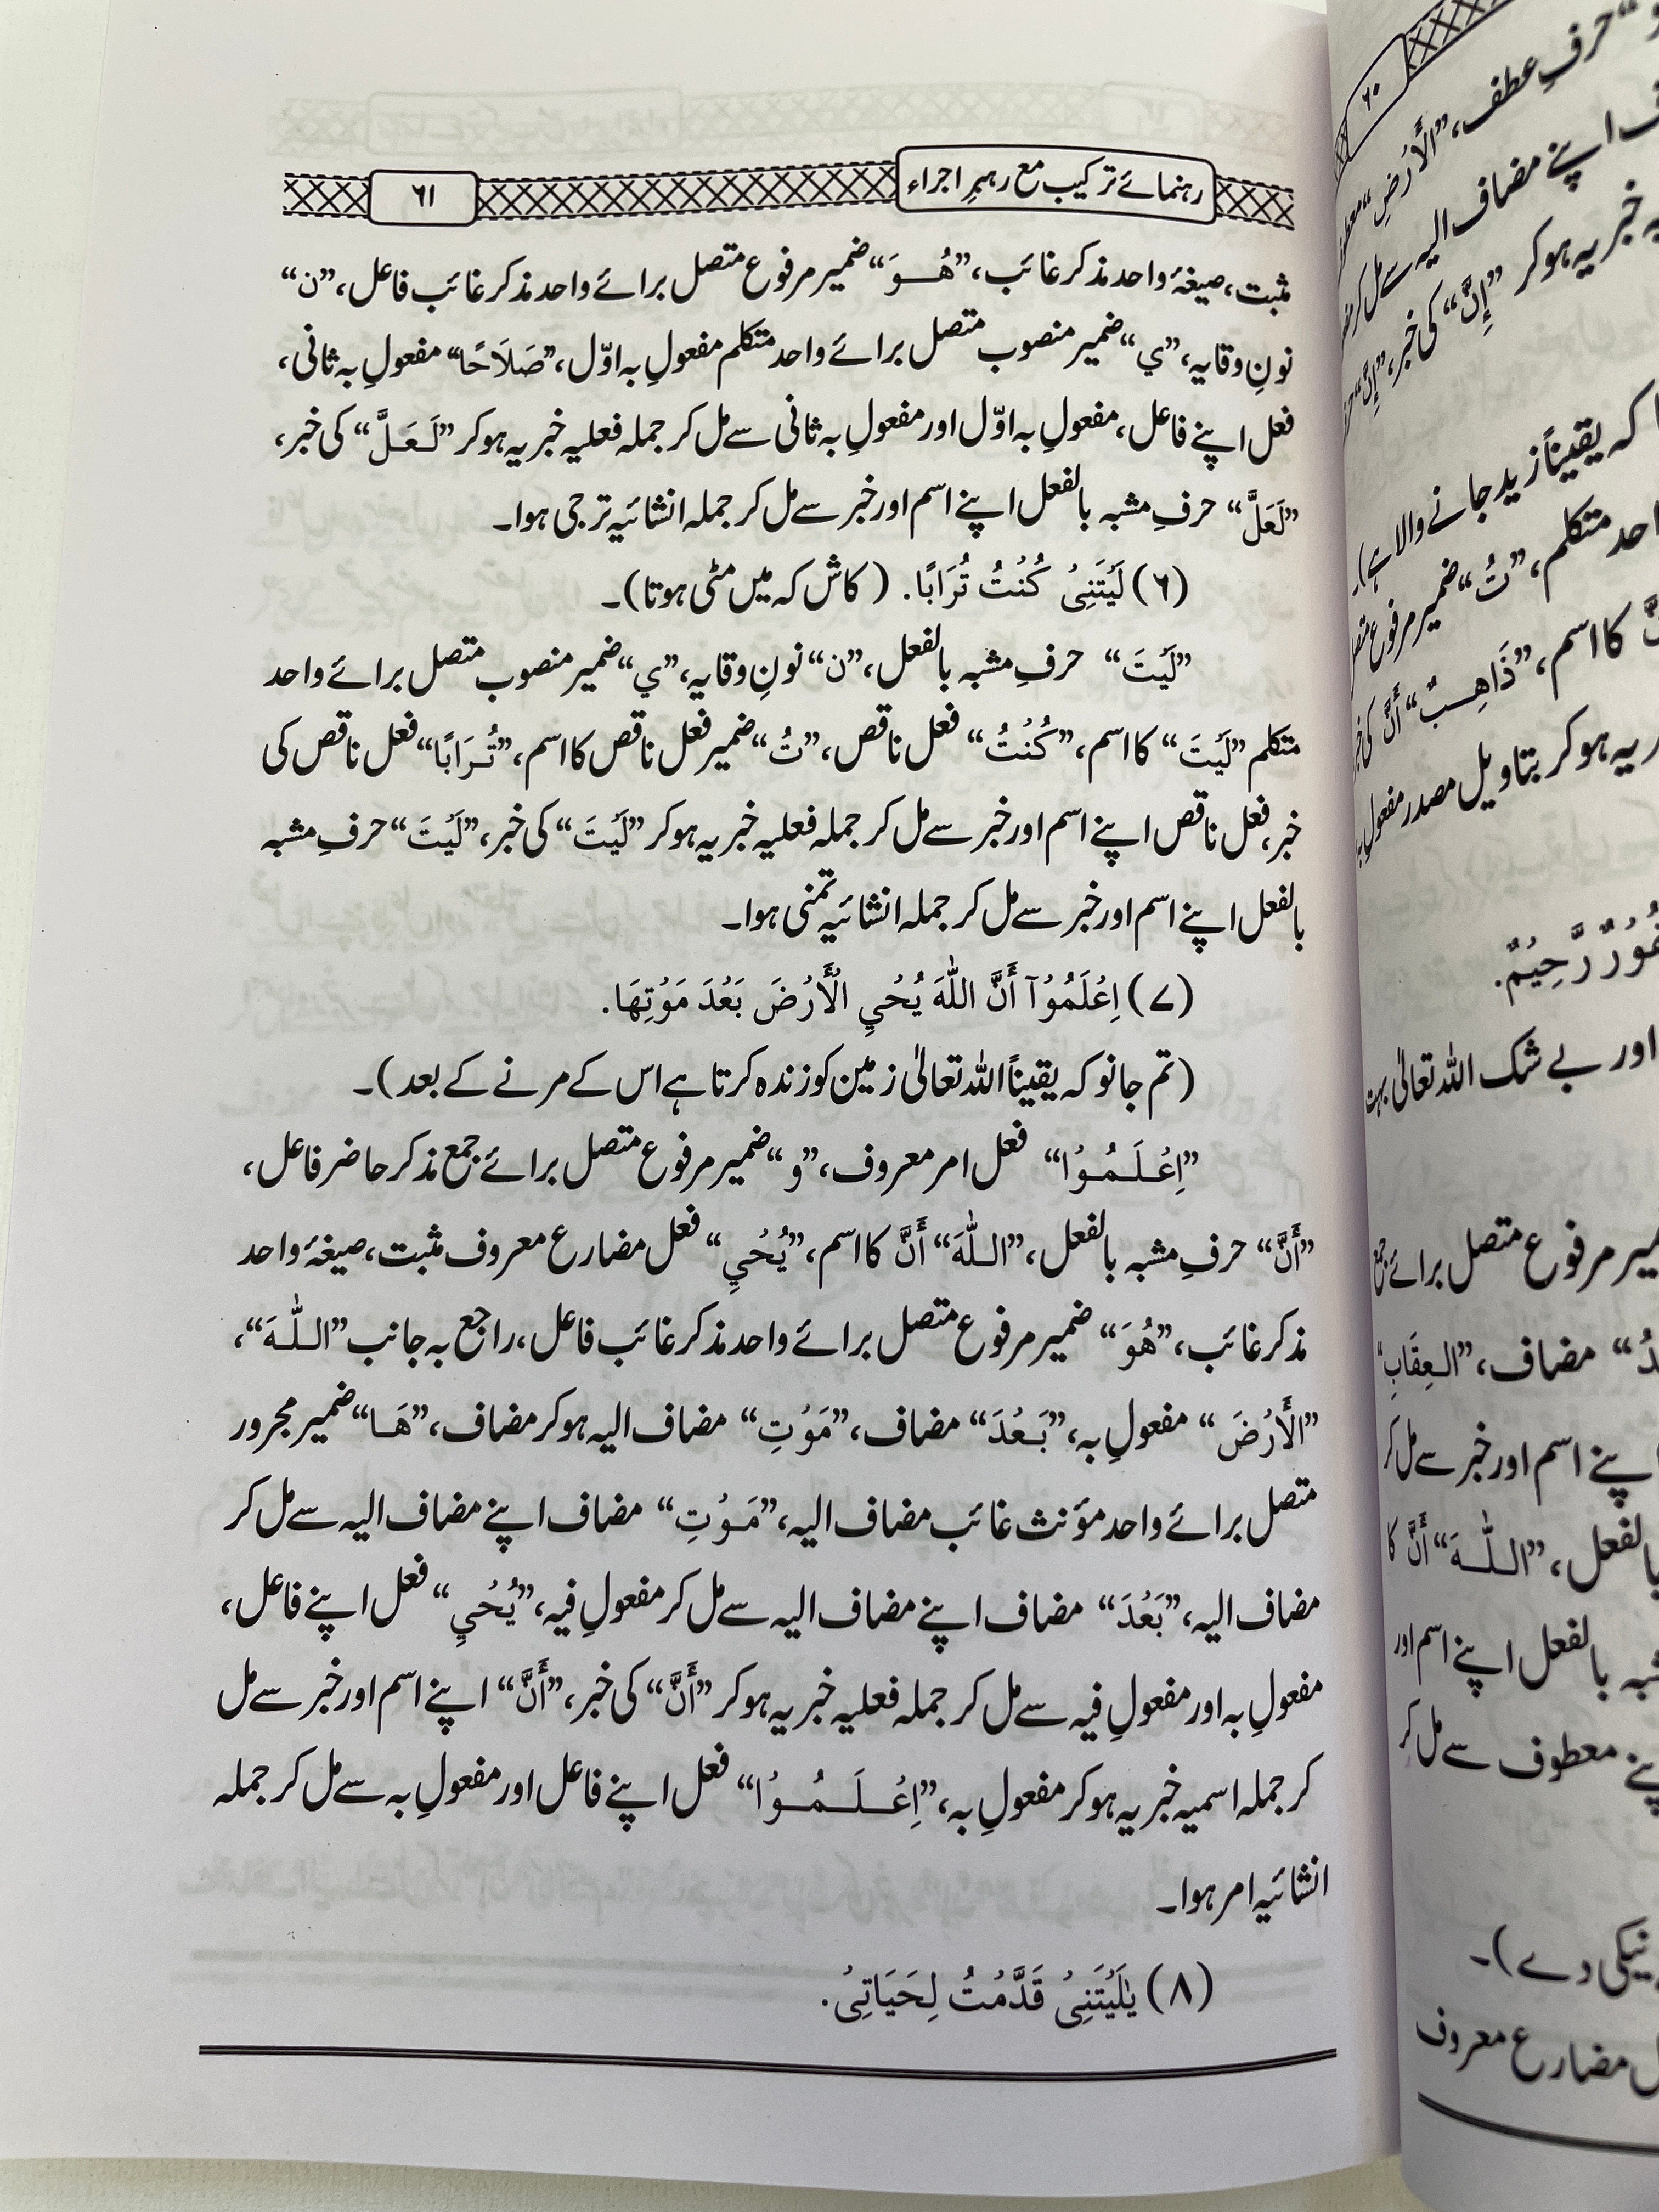 رہنمائے ترکیب مع رہبرِ اجراء
۶۱
مثبت، صیغۂ واحد مذکر غائب، ”هُــوَ“ ضمیر مرفوع متصل برائے واحد مذکر غائب فاعل، ”ن“
نونِ وقایہ، ”ي“ ضمیر منصوب متصل برائے واحد متکلم مفعولِ بہ اوّل، ”صَلَاحًا“ مفعولِ بہ ثانی،
فعل اپنے فاعل، مفعولِ بہ اوّل اور مفعولِ بہ ثانی سے مل کر جملہ فعلیہ خبریہ ہوکر ”لَـعَـلَّ“ کی خبر،
”لَعَلَّ“ حرفِ مشبہ بالفعل اپنے اسم اور خبر سے مل کر جملہ انشائیہ ترجی ہوا۔
(۶) لَيْتَنِيْ كُنْتُ تُرَابًا. (کاش کہ میں مٹی ہوتا)۔
”لَيْتَ“ حرفِ مشبہ بالفعل، ”ن“ نونِ وقایہ، ”ي“ ضمیر منصوب متصل برائے واحد
متکلم ”لَيْتَ“ کا اسم، ”كُنْتُ“ فعل ناقص، ”تُ“ ضمیر فعل ناقص کا اسم، ”تُـرَابًا“ فعل ناقص کی
خبر، فعل ناقص اپنے اسم اور خبر سے مل کر جملہ فعلیہ خبریہ ہوکر ”لَيْتَ“ کی خبر، ”لَيْتَ“ حرفِ مشبہ
بالفعل اپنے اسم اور خبر سے مل کر جملہ انشائیہ تمنی ہوا۔
(۷) اِعْلَمُوْآ أَنَّ اللّٰهَ يُحْيِ الْأَرْضَ بَعْدَ مَوْتِهَا.
(تم جانو کہ یقیناً اللہ تعالیٰ زمین کو زندہ کرتا ہے اس کے مرنے کے بعد)۔
”اِعْـلَـمُـوْا“ فعل امر معروف، ”و“ ضمیر مرفوع متصل برائے جمع مذکر حاضر فاعل،
”أَنَّ“ حرفِ مشبہ بالفعل، ”اللّٰهَ“ أَنَّ کا اسم، ”يُحْيِ“ فعل مضارع معروف مثبت، صیغۂ واحد
مذکر غائب، ”هُوَ“ ضمیر مرفوع متصل برائے واحد مذکر غائب فاعل، راجع بہ جانب ”اللّٰهَ“،
”الأَرْضَ“ مفعولِ بہ، ”بَـعْدَ“ مضاف، ”مَوْتِ“ مضاف الیہ ہوکر مضاف، ”هَـا“ ضمیر مجرور
متصل برائے واحد مؤنث غائب مضاف الیہ، ”مَـوْتِ“ مضاف اپنے مضاف الیہ سے مل کر
مضاف الیہ، ”بَعْدَ“ مضاف اپنے مضاف الیہ سے مل کر مفعولِ فیہ، ”يُحْيِ“ فعل اپنے فاعل،
مفعولِ بہ اور مفعولِ فیہ سے مل کر جملہ فعلیہ خبریہ ہوکر ”أَنَّ“ کی خبر، ”أَنَّ“ اپنے اسم اور خبر سے مل
کر جملہ اسمیہ خبریہ ہوکر مفعولِ بہ، ”اِعْـلَـمُـوْا“ فعل اپنے فاعل اور مفعولِ بہ سے مل کر جملہ
انشائیہ امر ہوا۔
(۸) يٰلَيْتَنِيْ قَدَّمْتُ لِحَيَاتِيْ.
۶۰
حرفِ عطف، ”الأَرْضِ“
اپنے مضاف الیہ سے مل کر
خبریہ ہوکر ”إِنَّ“ کی خبر، ”إِنَّ“
کہ یقیناً زید جانے والا ہے)۔
متکلم، ”تُ“ ضمیر مرفوع
کا اسم، ”ذَاهِـبٌ“ أَنَّ کی
ہوکر بتاویل مصدر مفعولِ
رَّحِيْمٌ.
اور بے شک اللہ تعالیٰ بہت
مرفوع متصل برائے جمع
مضاف، ”الـعِقَابِ“
اپنے اسم اور خبر سے مل کر
”اللّٰهَ“ أَنَّ کا
بالفعل اپنے اسم اور
معطوف سے مل کر
نیکی دے)۔
مضارع معروف